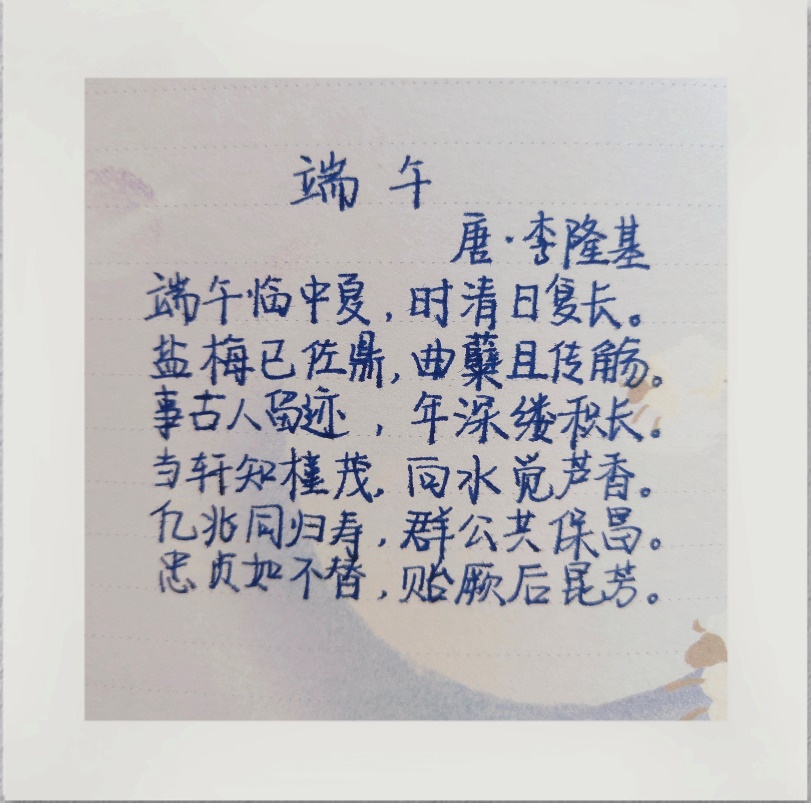 端午
唐·李隆基
端午临中夏，时清日复长。
盐梅已佐鼎，曲蘖且传觞。
事古人留迹，年深缕积长。
当轩知槿茂，向水觉芦香。
亿兆同归寿，群公共保昌。
忠贞如不替，贻厥后昆芳。